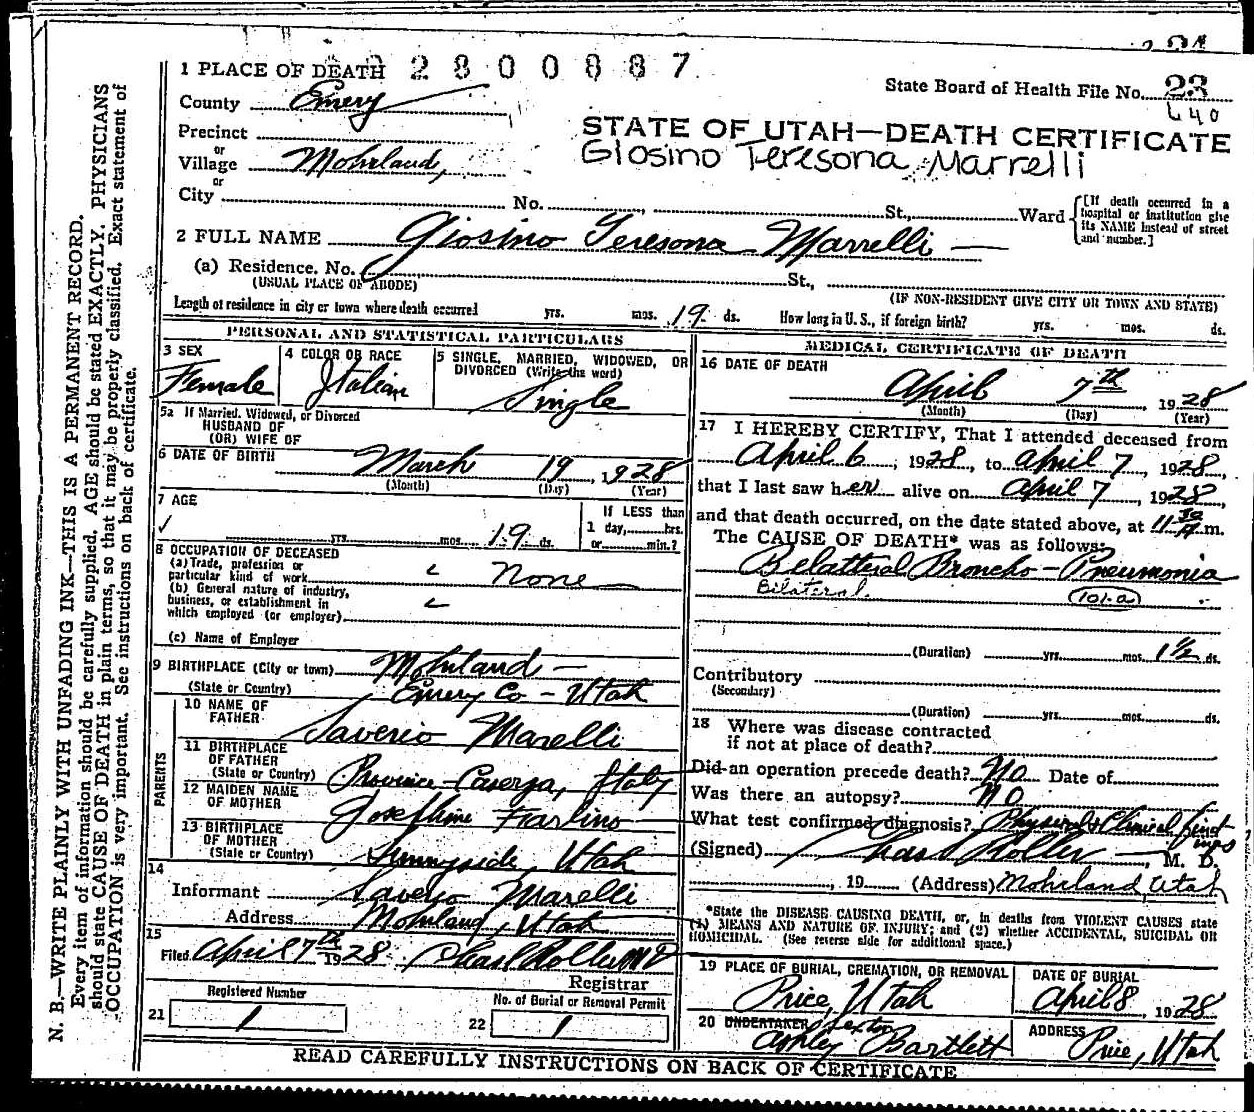 2 8 0 0 8 8 7
1 PLACE OF DEATH
State Board of Health File No. 23
640
County Emery
STATE OF UTAH—DEATH CERTIFICATE
Giosino Teresona Marrelli
Precinct
or
Village Mohrland,
or
City No. St., Ward
[If death occurred in a hospital or institution give its NAME instead of street and number.]
2 FULL NAME Giosino Teresona Marrelli —
(a) Residence. No. St.,
(USUAL PLACE OF ABODE) (IF NON-RESIDENT GIVE CITY OR TOWN AND STATE)
Length of residence in city or town where death occurred yrs. mos. 19 ds. How long in U. S., if foreign birth? yrs. mos. ds.
PERSONAL AND STATISTICAL PARTICULARS
3 SEX
Female
4 COLOR OR RACE
Italian
5 SINGLE, MARRIED, WIDOWED, OR DIVORCED (Write the word)
Single
5a If Married, Widowed, or Divorced
HUSBAND OF
(OR) WIFE OF
6 DATE OF BIRTH March 19, 1928
(Month) (Day) (Year)
7 AGE
yrs. mos. 19 ds.
If LESS than
1 day, hrs.
or min.?
8 OCCUPATION OF DECEASED
(a) Trade, profession or
particular kind of work None
(b) General nature of industry,
business, or establishment in
which employed (or employer)
(c) Name of Employer
9 BIRTHPLACE (City or town) Mohrland —
(State or Country) Emery Co — Utah
PARENTS
10 NAME OF
FATHER Saverio Marelli
11 BIRTHPLACE
OF FATHER
(State or Country) Province-Caserja, Italy
12 MAIDEN NAME
OF MOTHER Josephine Frarlino
13 BIRTHPLACE
OF MOTHER
(State or Country) Sunnyside, Utah
14
Informant Saverio Marelli
Address Mohrland, Utah
15
Filed April 7th 1928 Chas L Roller MD
Registrar
21 Registered Number
1
22 No. of Burial or Removal Permit
1
MEDICAL CERTIFICATE OF DEATH
16 DATE OF DEATH
April 7th, 1928
(Month) (Day) (Year)
17 I HEREBY CERTIFY, That I attended deceased from
April 6, 1928, to April 7, 1928,
that I last saw her alive on April 7, 1928,
and that death occurred, on the date stated above, at 11 30 A m.
The CAUSE OF DEATH* was as follows:
Belatteral Broncho-Pneumonia
Bilateral. 101.a
(Duration) yrs. mos. 1½ ds.
Contributory
(Secondary)
(Duration) yrs. mos. ds.
18 Where was disease contracted
if not at place of death?
Did an operation precede death? No Date of
Was there an autopsy? NO
What test confirmed diagnosis? Physical & Clinical findings
(Signed) Chas L Roller, M. D.
, 19 (Address) Mohrland Utah
*State the DISEASE CAUSING DEATH, or, in deaths from VIOLENT CAUSES state
(1) MEANS AND NATURE OF INJURY; and (2) whether ACCIDENTAL, SUICIDAL OR
HOMICIDAL. (See reverse side for additional space.)
19 PLACE OF BURIAL, CREMATION, OR REMOVAL
Price, Utah
DATE OF BURIAL
April 8 1928
20 UNDERTAKER Sexton
Ashley Bartlett
ADDRESS
Price, Utah
READ CAREFULLY INSTRUCTIONS ON BACK OF CERTIFICATE
N. B.—WRITE PLAINLY WITH UNFADING INK—THIS IS A PERMANENT RECORD.
Every item of information should be carefully supplied. AGE should be stated EXACTLY. PHYSICIANS
should state CAUSE OF DEATH in plain terms, so that it may be properly classified. Exact statement of
OCCUPATION is very important. See instructions on back of certificate.